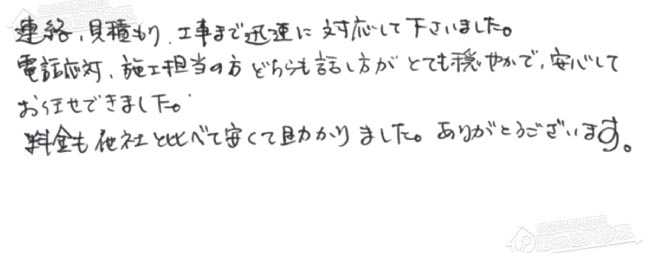 連絡、見積もり、工事まで迅速に対応して下さいました。
電話応対、施工担当の方どちらも話し方がとても穏やかで、安心して
お任せできました。
料金も他社と比べて安くて助かりました。ありがとうございます。